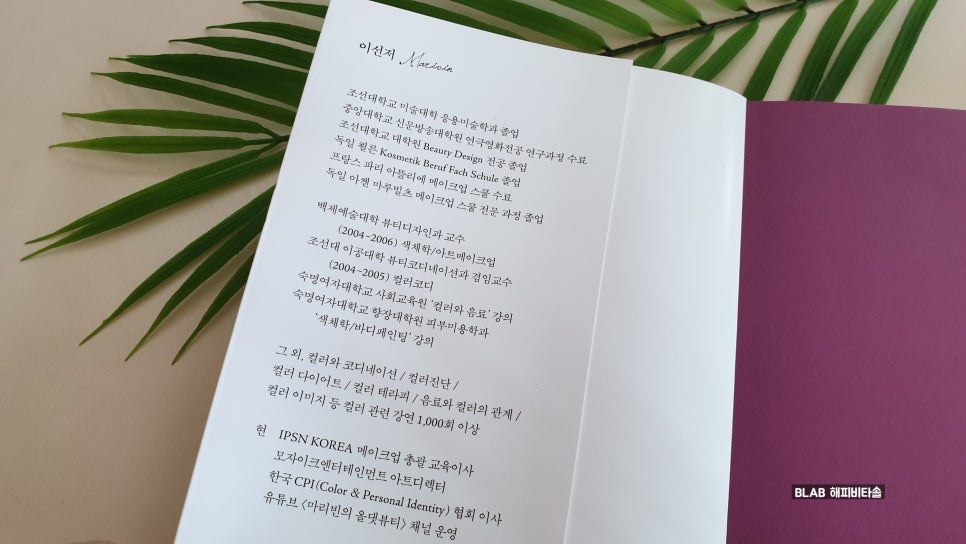 이선저 Marivin
조선대학교 미술대학 응용미술학과 졸업
중앙대학교 신문방송대학원 연극영화전공 연구과정 수료
조선대학교 대학원 Beauty Design 전공 졸업
독일 쾰른 Kosmetik Beruf Fach Schule 졸업
프랑스 파리 아뜰리에 메이크업 스쿨 수료
독일 아켄 마루빌츠 메이크업 스쿨 전문 과정 졸업
백제예술대학 뷰티디자인과 교수
(2004-2006) 색채학/아트메이크업
조선대 이공대학 뷰티코디네이션과 겸임교수
(2004-2005) 컬러코디
숙명여자대학교 사회교육원 ‘컬러와 음료’ 강의
숙명여자대학교 향장대학원 피부미용학과
‘색채학/바디페인팅’ 강의
그 외, 컬러와 코디네이션 / 컬러진단 /
컬러 다이어트 / 컬러 테라피 / 음료와 컬러의 관계 /
컬러 이미지 등 컬러 관련 강연 1,000회 이상
현 IPSN KOREA 메이크업 총괄 교육이사
모자이크엔터테인먼트 아트디렉터
한국 CPI(Color & Personal Identity) 협회 이사
유튜브 〈마리빈의 올댓뷰티〉 채널 운영
BLAB 해피비타솔